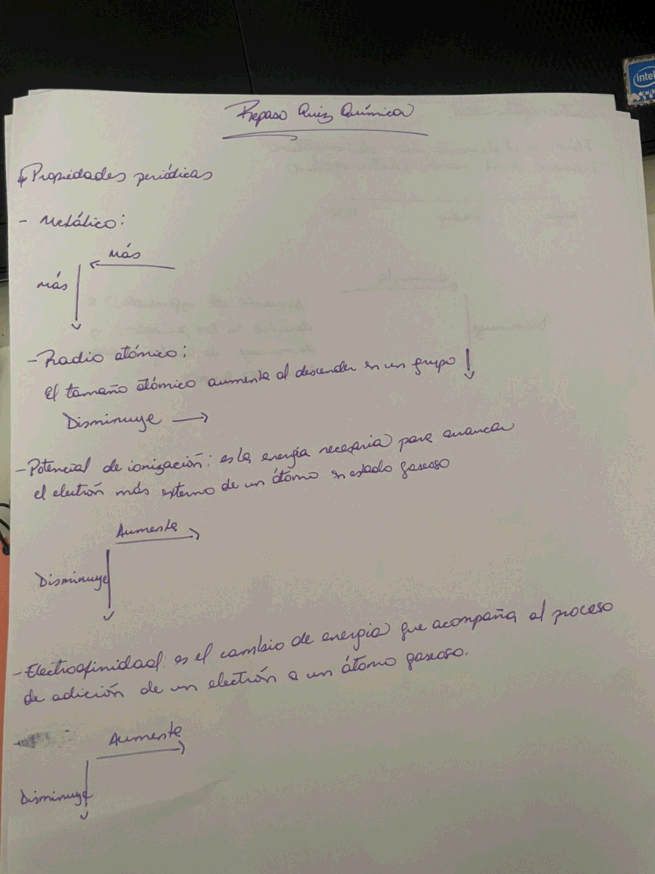 Repaso Quiz Química
Propiedades periódicas
- Metálico:
más
más
- Radio atómico:
El tamaño atómico aumenta al descender en un grupo
Disminuye
- Potencial de ionización: es la energía necesaria para arrancar
el electrón más externo de un átomo en estado gaseoso
Aumenta
Disminuye
- Electroafinidad: es el cambio de energía que acompaña al proceso
de adición de un electrón a un átomo gaseoso.
Aumenta
Disminuye
intel